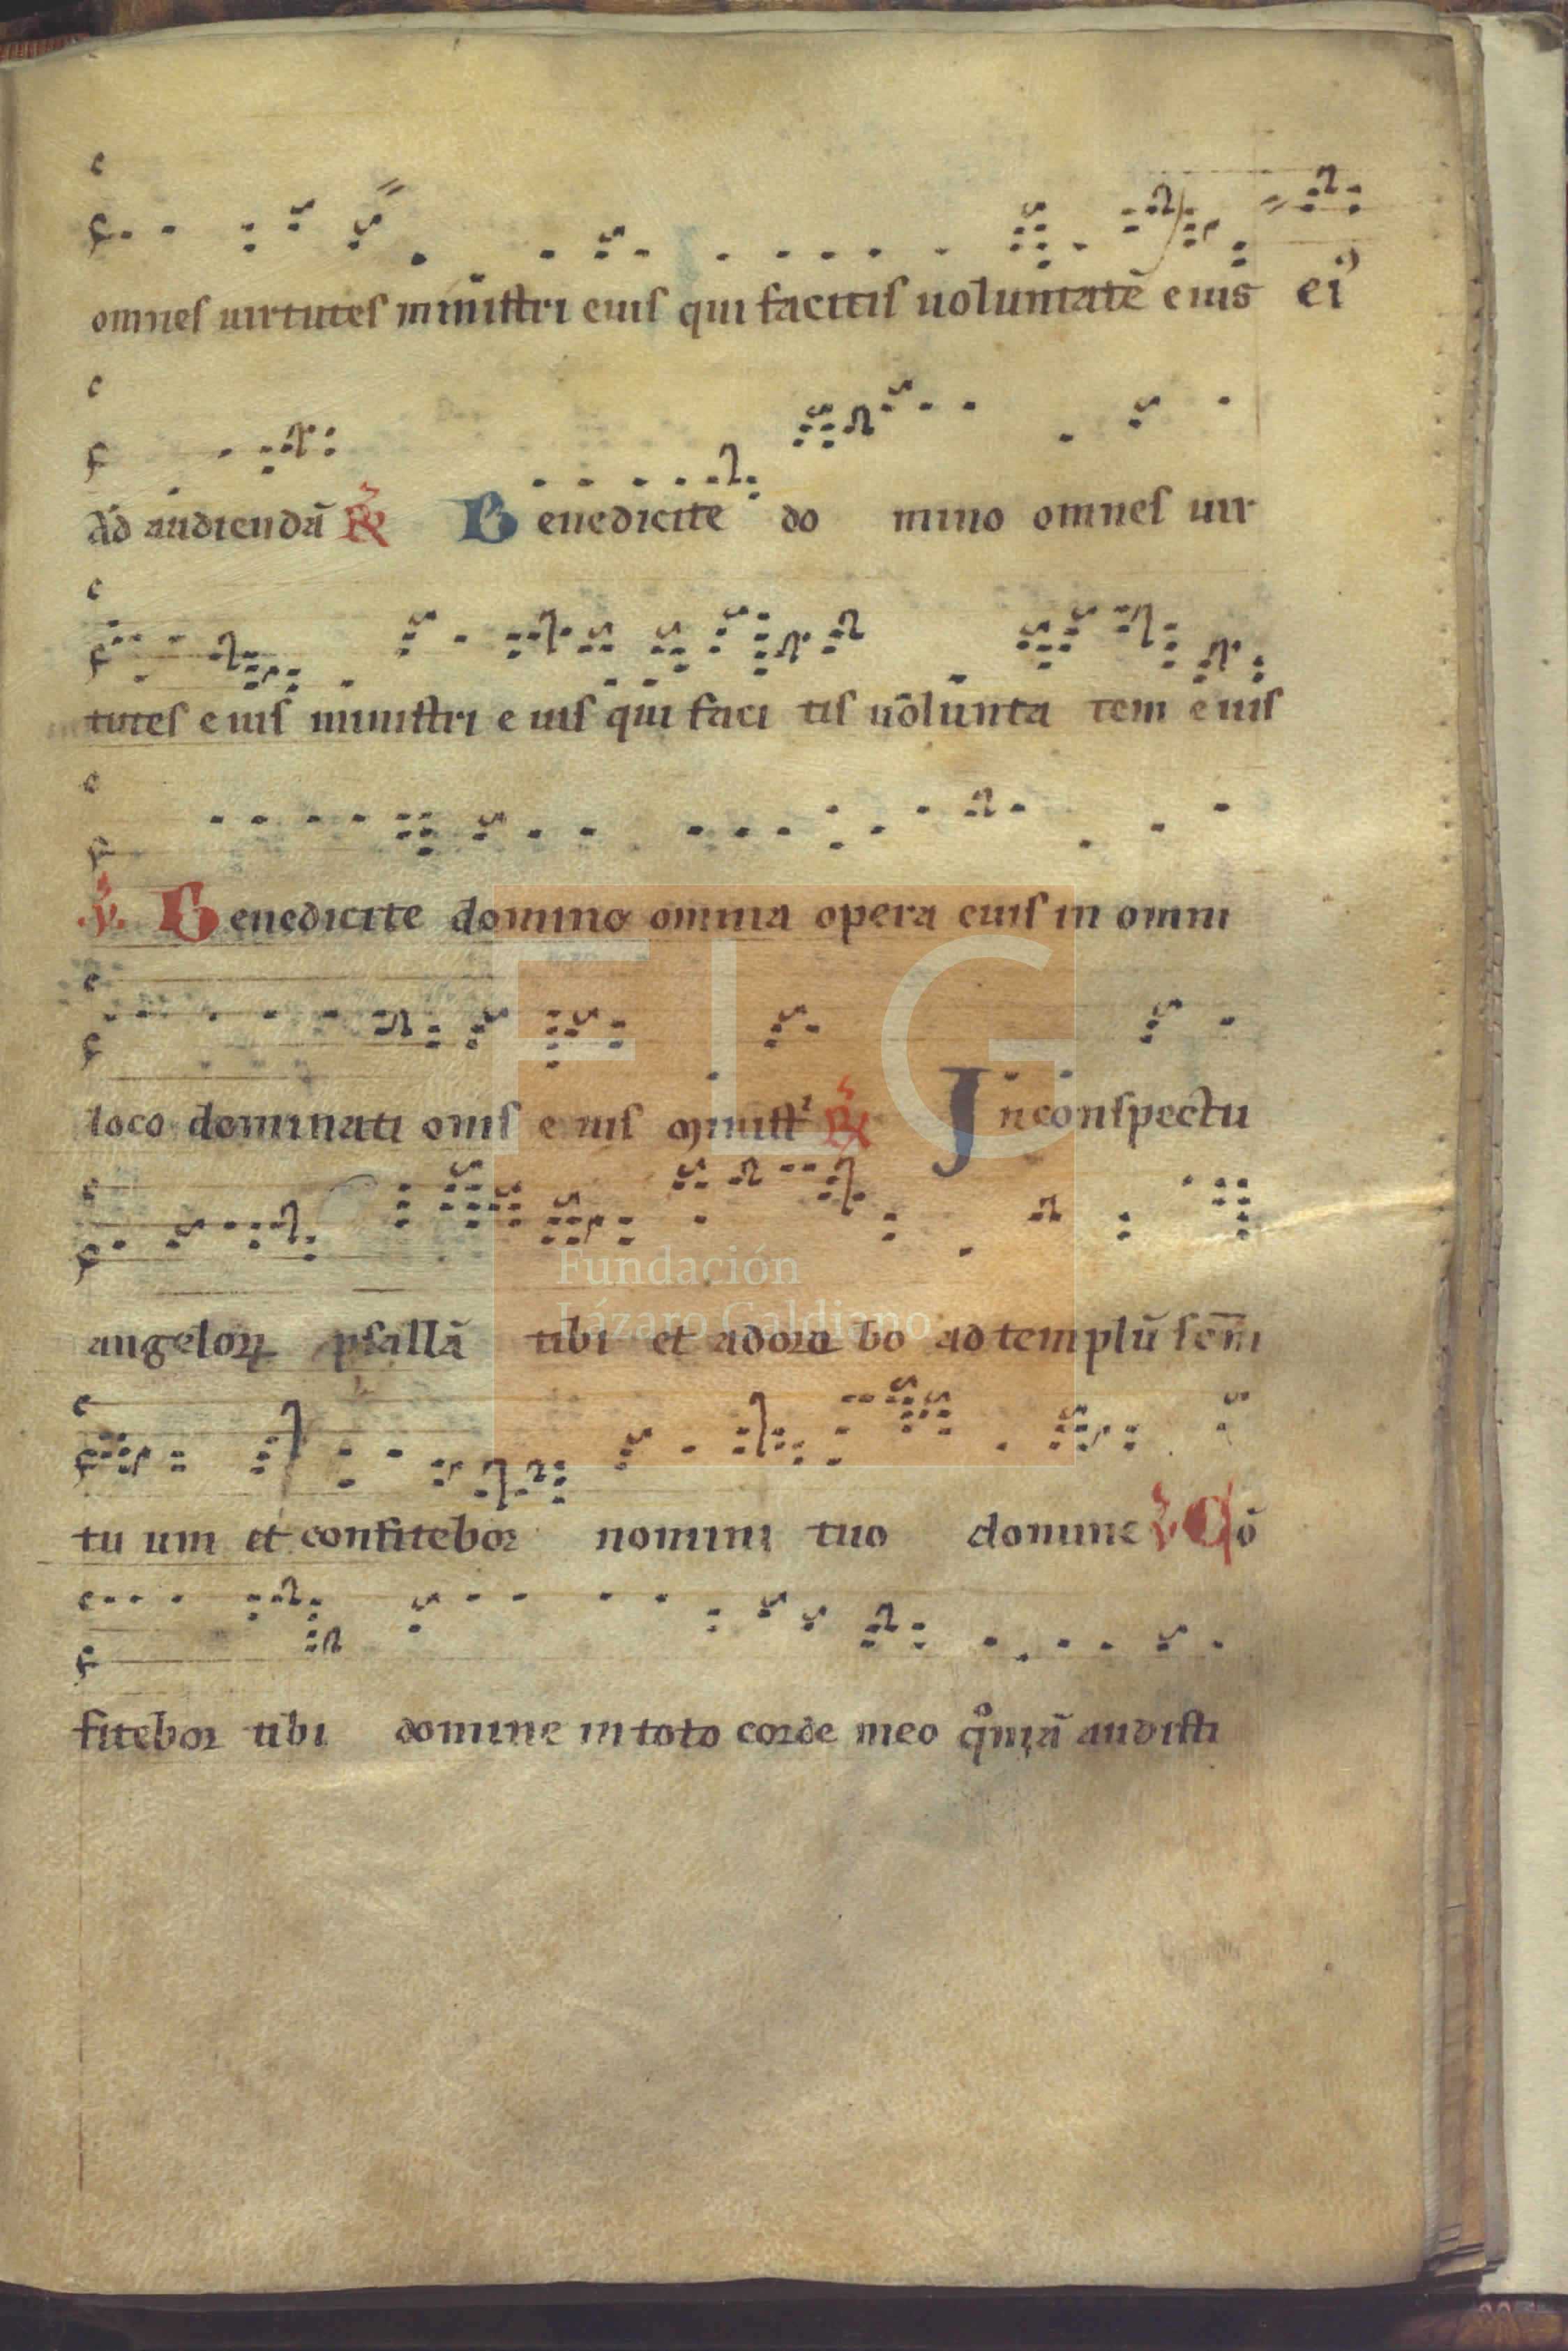 omnes uirtutes ministri eius qui facitis uoluntatē eius ei᾽
Ad audiendā R̃ Benedicite do mino omnes uir
tutes e ius ministri e ius qui faci tis uolunta tem eius
.ṽ. Benedicite domino omnia opera eius in omni
loco dominati onis e ius minist² R̃ In conspectu
angeloꝝ psallā tibi et adora bo ad templū sc̄m
tu um et confitebor nomini tuo domine ṽ Cō
fitebor tibi domine in toto corde meo qͦniā audisti
FLG
Fundación
Lázaro Galdiano